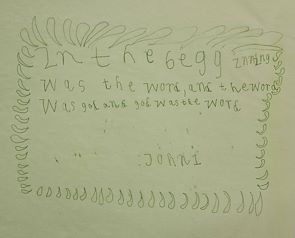 In the begg inning
was the word, and the word
was god and god was the word
JOHN 1